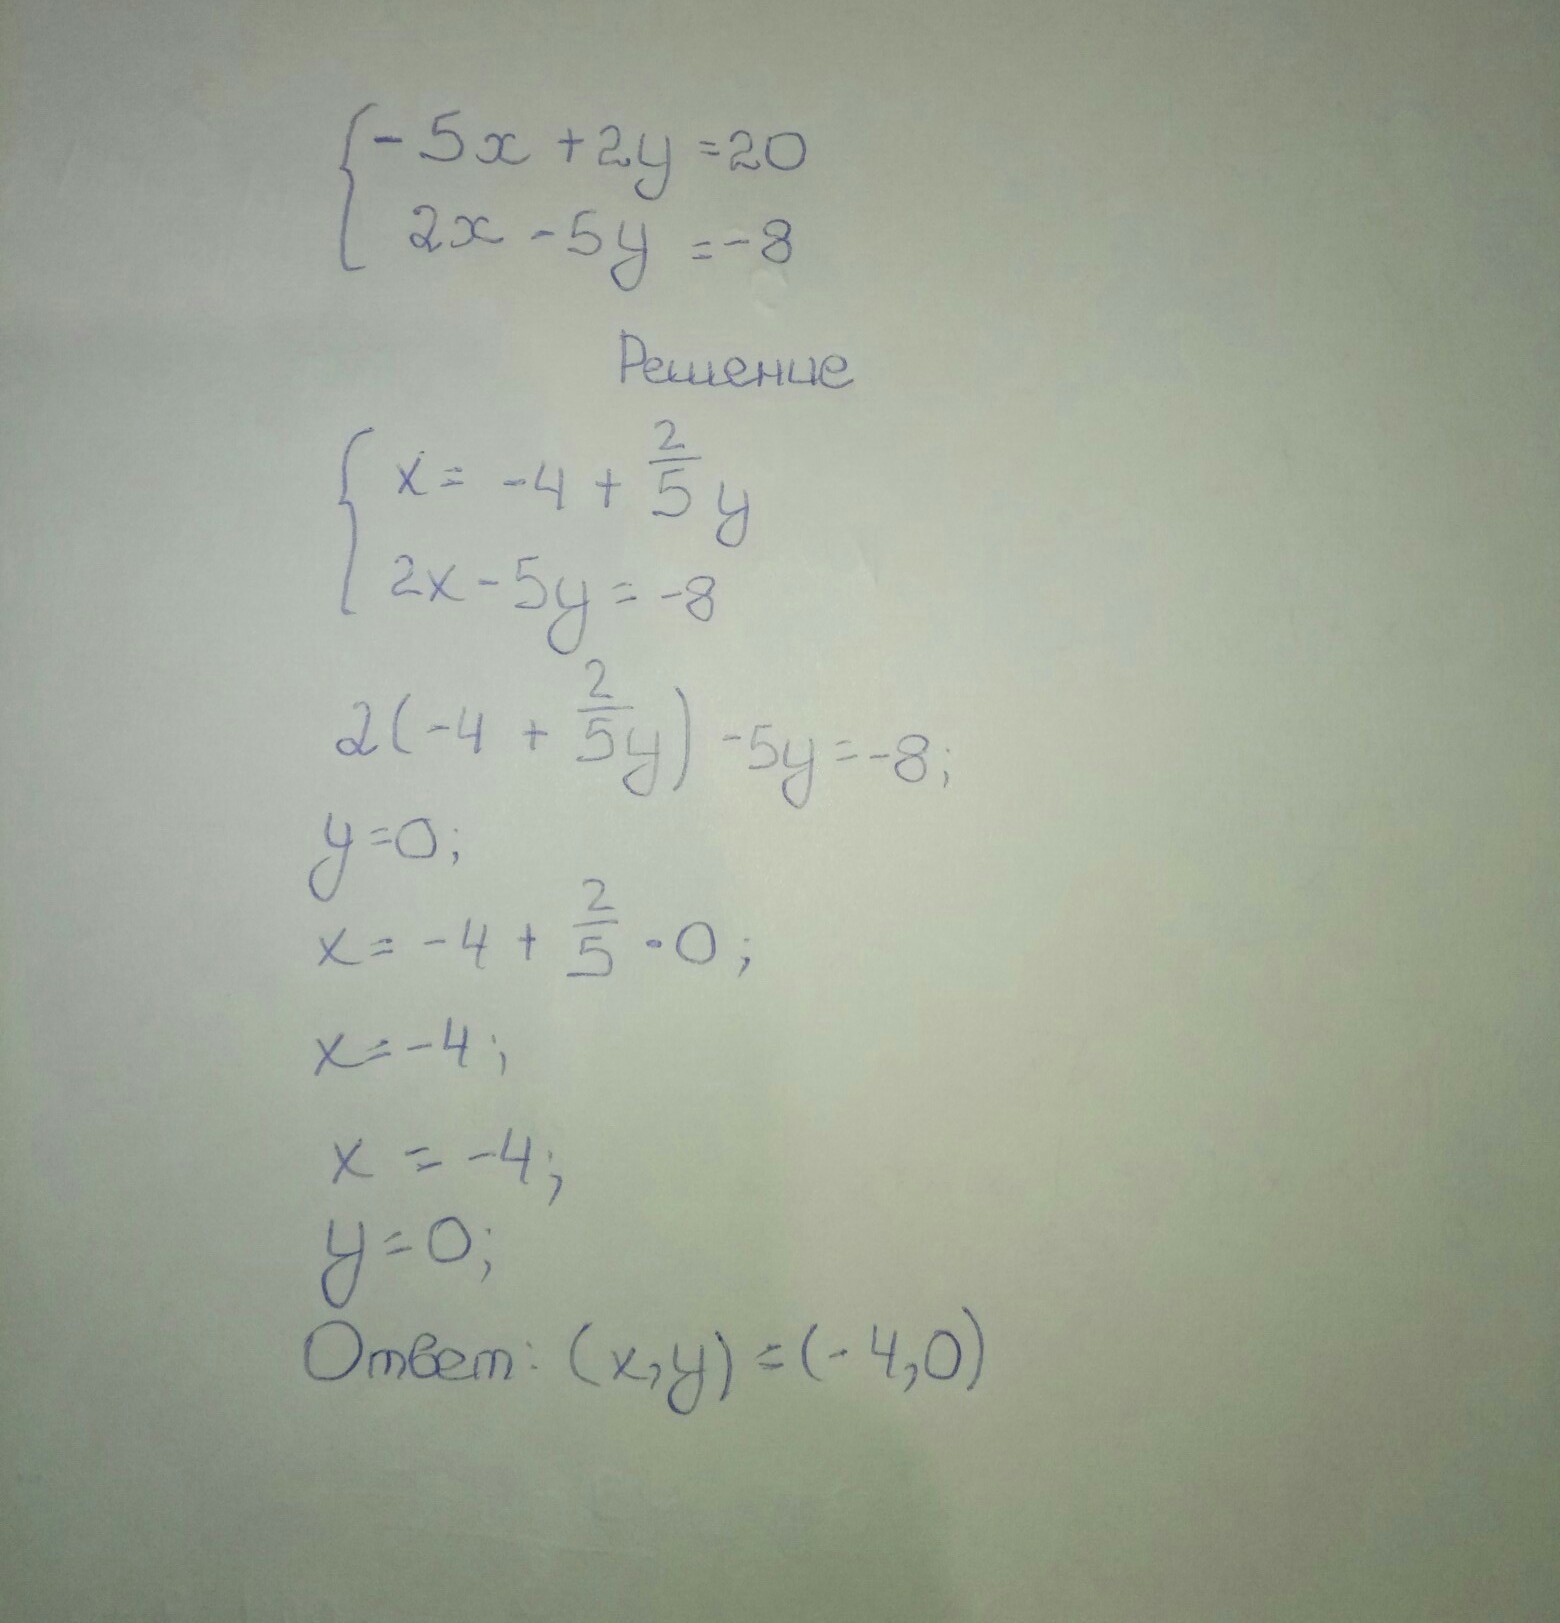 {-5x+2y=20
2x-5y=-8
Решение
{x=-4+2/5y
2x-5y=-8
2(-4+2/5y)-5y=-8;
y=0;
x=-4+2/5·0;
x=-4;
x=-4;
y=0;
Ответ: (x,y)=(-4,0)